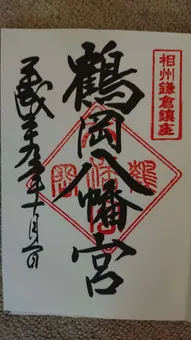 相州鎌倉鎮座
鶴岡八幡宮
平成 年十月 日